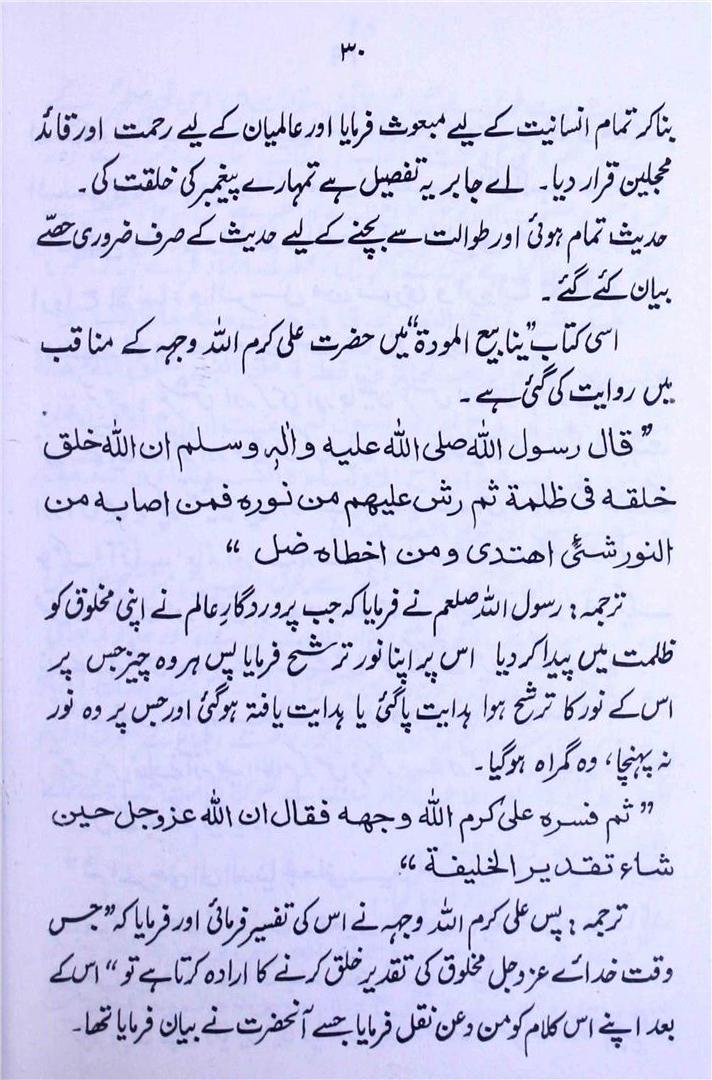 ۳۰
بناکر تمام انسانیت کے لیے مبعوث فرمایا اور عالمیان کے لیے رحمت اور قائد
محجلین قرار دیا۔ اے جابر یہ تفصیل ہے تمہارے پیغمبر کی خلقت کی۔
حدیث تمام ہوئی اور طوالت سے بچنے کے لیے حدیث کے صرف ضروری حصّے
بیان کئے گئے۔
اسی کتاب "ینابیع المودۃ" میں حضرت علی کرم اللہ وجہہ کے مناقب
میں روایت کی گئی ہے۔
"قال رسول اللہ صلی اللہ علیہ واٰلہٖ وسلم ان اللہ خلق
خلقہ فی ظلمة ثم رش علیہم من نورہ فمن اصابہ من
النور شئیٌ اھتدی ومن اخطاہ ضل"
ترجمہ: رسول اللہ صلعم نے فرمایا کہ جب پروردگارِ عالم نے اپنی مخلوق کو
ظلمت میں پیدا کر دیا اس پر اپنا نور ترشح فرمایا پس ہر وہ چیز جس پر
اس کے نور کا ترشح ہوا ہدایت پا گئی یا ہدایت یافتہ ہو گئی اور جس پر وہ نور
نہ پہنچا، وہ گمراہ ہو گیا۔
"ثم فسرہ علی کرم اللہ وجھہ فقال ان اللہ عزوجل حین
شاء تقدیر الخلیفة"
ترجمہ: پس علی کرم اللہ وجہہ نے اس کی تفسیر فرمائی اور فرمایا کہ "جس
وقت خدائے عزوجل مخلوق کی تقدیر خلق کرنے کا ارادہ کرتا ہے تو" اس کے
بعد اپنے اس کلام کو من وعن نقل فرمایا جسے آنحضرت نے بیان فرمایا تھا۔